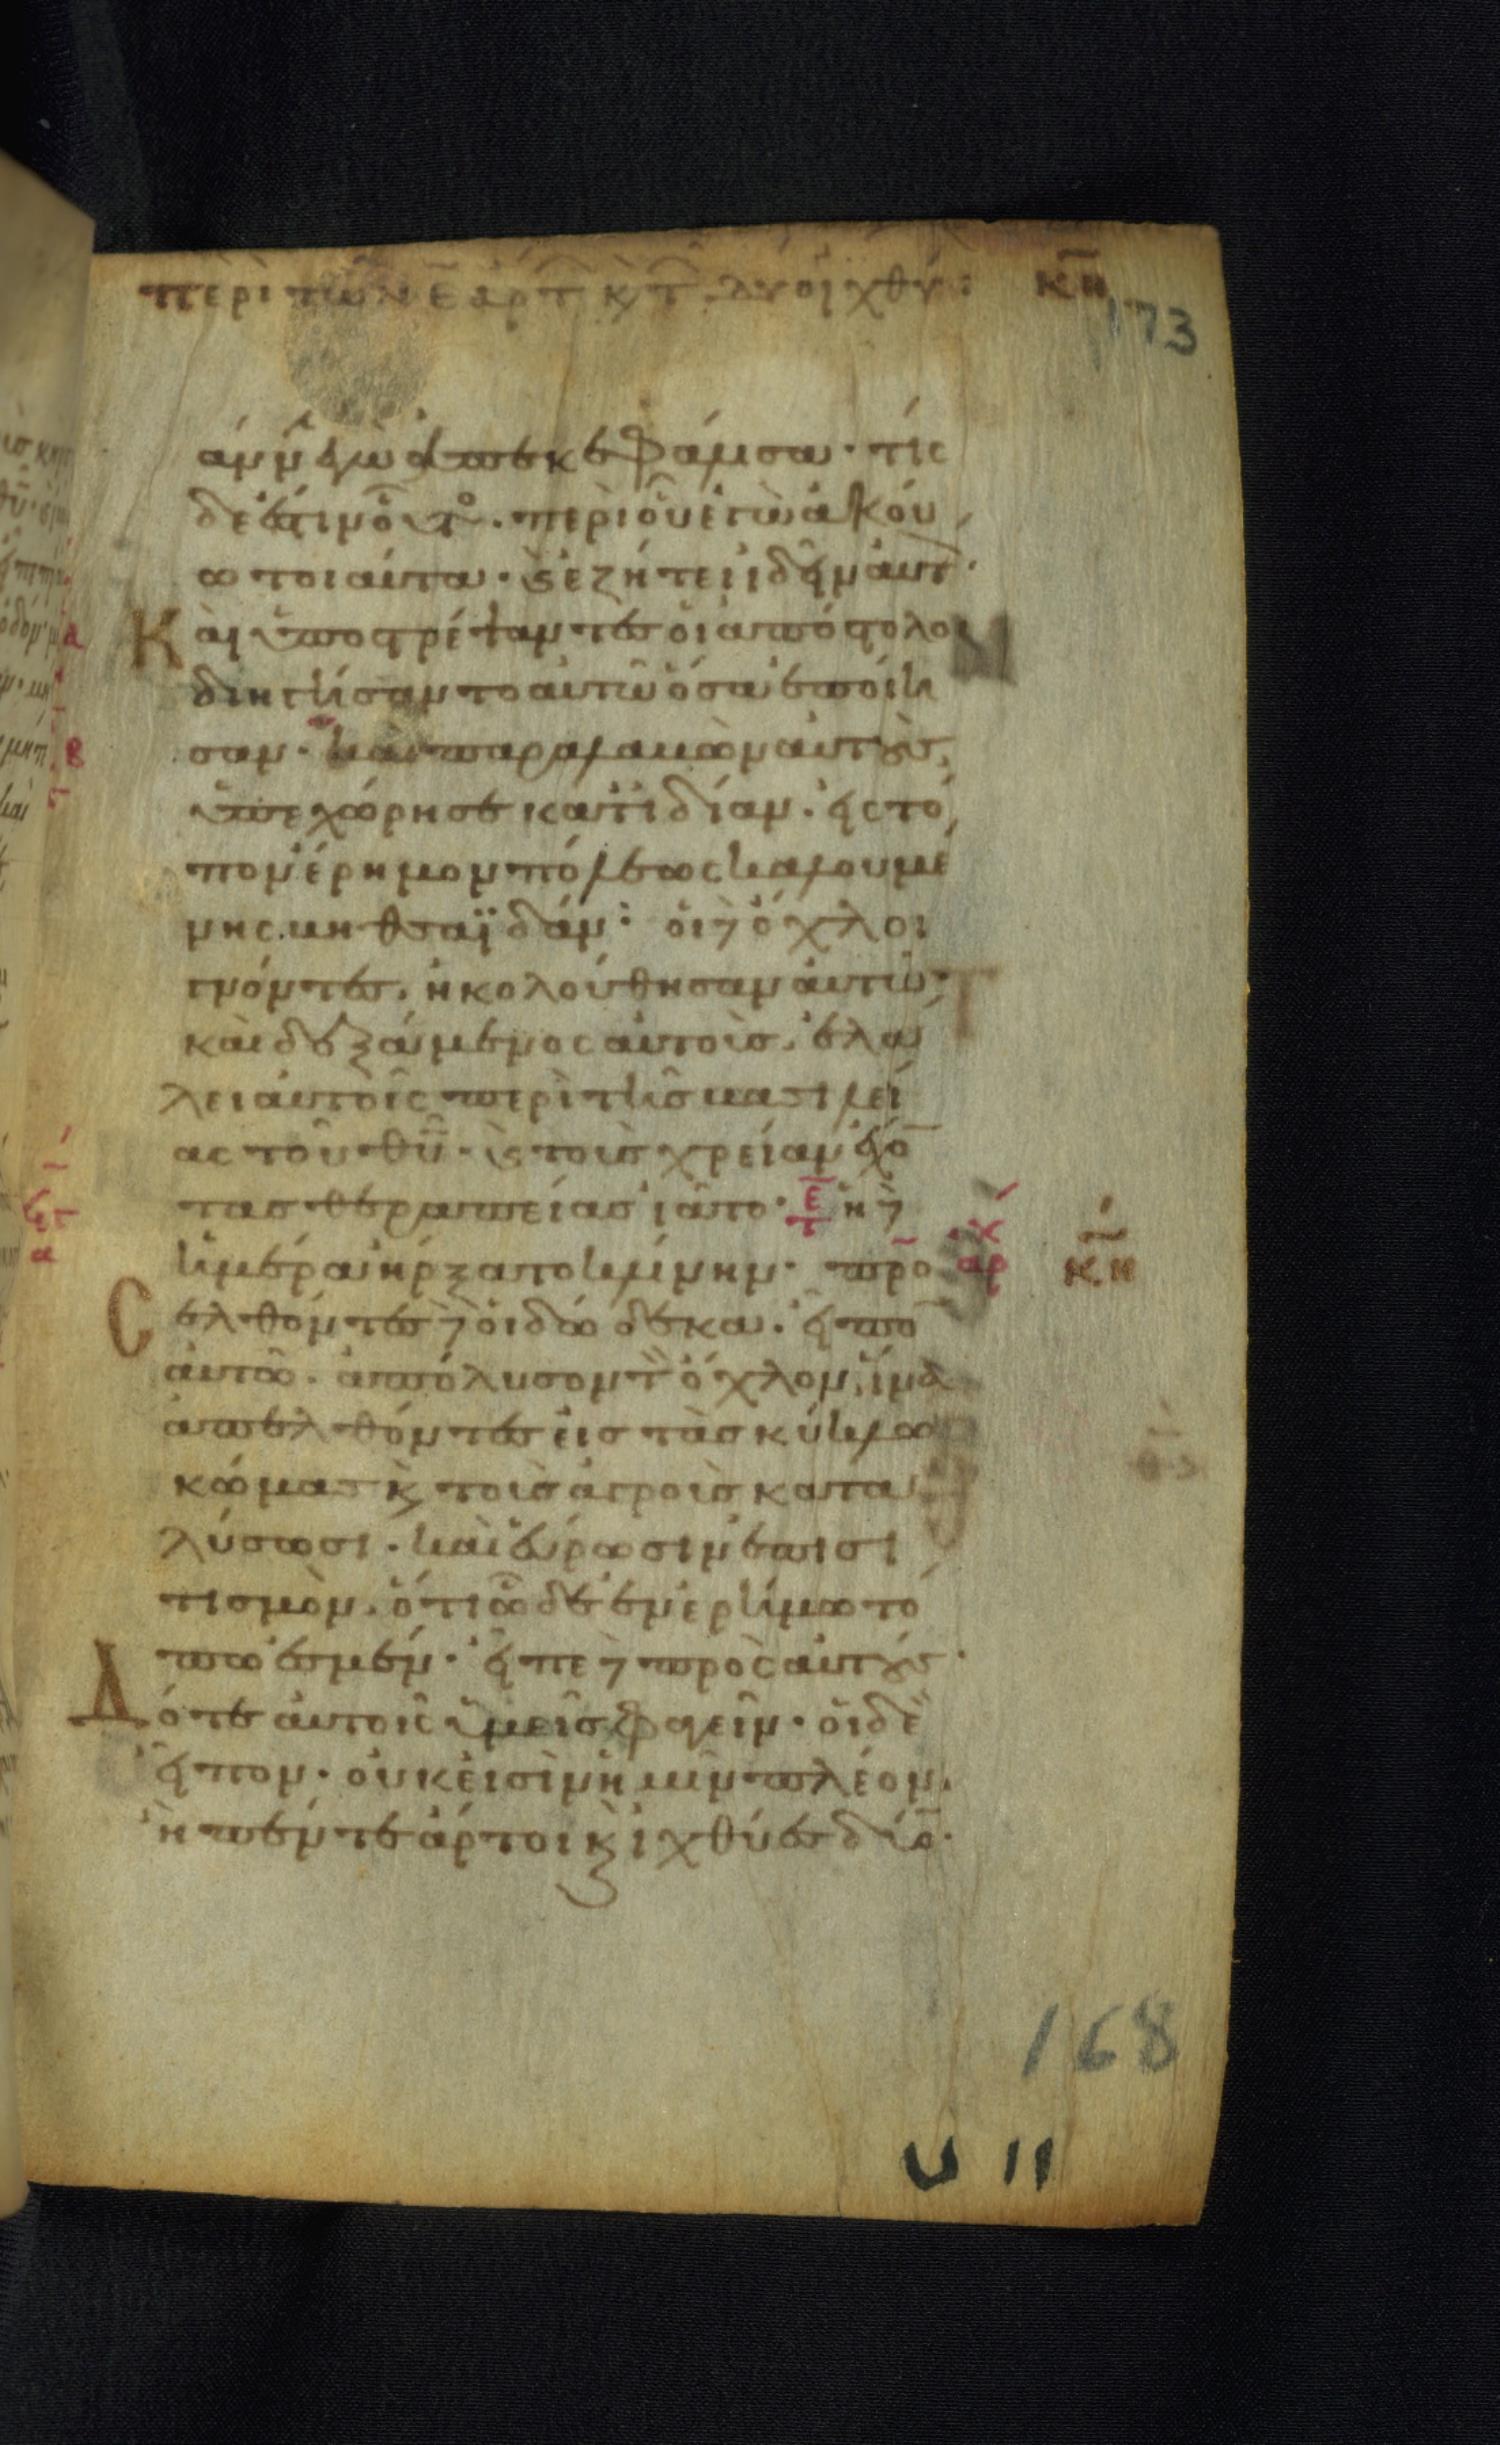 περὶ τῶν ε̄ ἄρτ κ τ δύο ἰχθύ: κη
173
ἀνν ἐγὼ ἀπεκεφάλισα· τίς
δέ ἐστιν οὗτο· περὶ οὗ ἐγὼ ἀκού
ω τοιαῦτα· κ ἐζήτει ἰδεῖν αὐτ·
Καὶ ὑποστρέψαντες οἱ ἀπόστολοι
διηγήσαντο αὐτῶ ὅσα ἐποίη
σαν· καὶ παραλαβὼν αὐτοὺς,
ὑπεχώρησε κατϊδίαν· εἰς τό
πον ἔρημον πόλεως καλουμέ
νης βηθσαϊδάν: οἱ δ ὄχλοι
γνόντες, ἠκολούθησαν αὐτῶ·
καὶ δεξάμενος αὐτοὺς, ἐλά
λει αὐτοῖς περὶ τῆς βασιλεί
ας τοῦ θῦ· κ τοὺς χρείαν ἔχο
τας θεραπείας ἰᾶτο· ε̄ τ ἡ δ
ἡμέρα ἤρξατο κλίνην· προ αρχ κη
Σελθόντες δ οἱ δώδεκα· εἶπο
αὐτῶ· ἀπόλυσον τ ὄχλον, ἵνα
ἀπελθόντες εἰς τὰς κύκλω
κώμας κ τοὺς ἀγροὺς κατα
λύσωσι· καὶ εὕρωσιν ἐπισι
τισμὸν, ὅτι ὧδε ἐν ἐρήμω τό
πω ἐσμέν· εἶπε δ πρὸς αὐτούς·
Δότε αὐτοῖς ὑμεῖς φαγεῖν· οἱ δὲ
εἶπον· οὐκ εἰσὶν ἡμῖν πλέον,
ἢ πέντε ἄρτοι κ ἰχθύες δύο·
168
υ 11